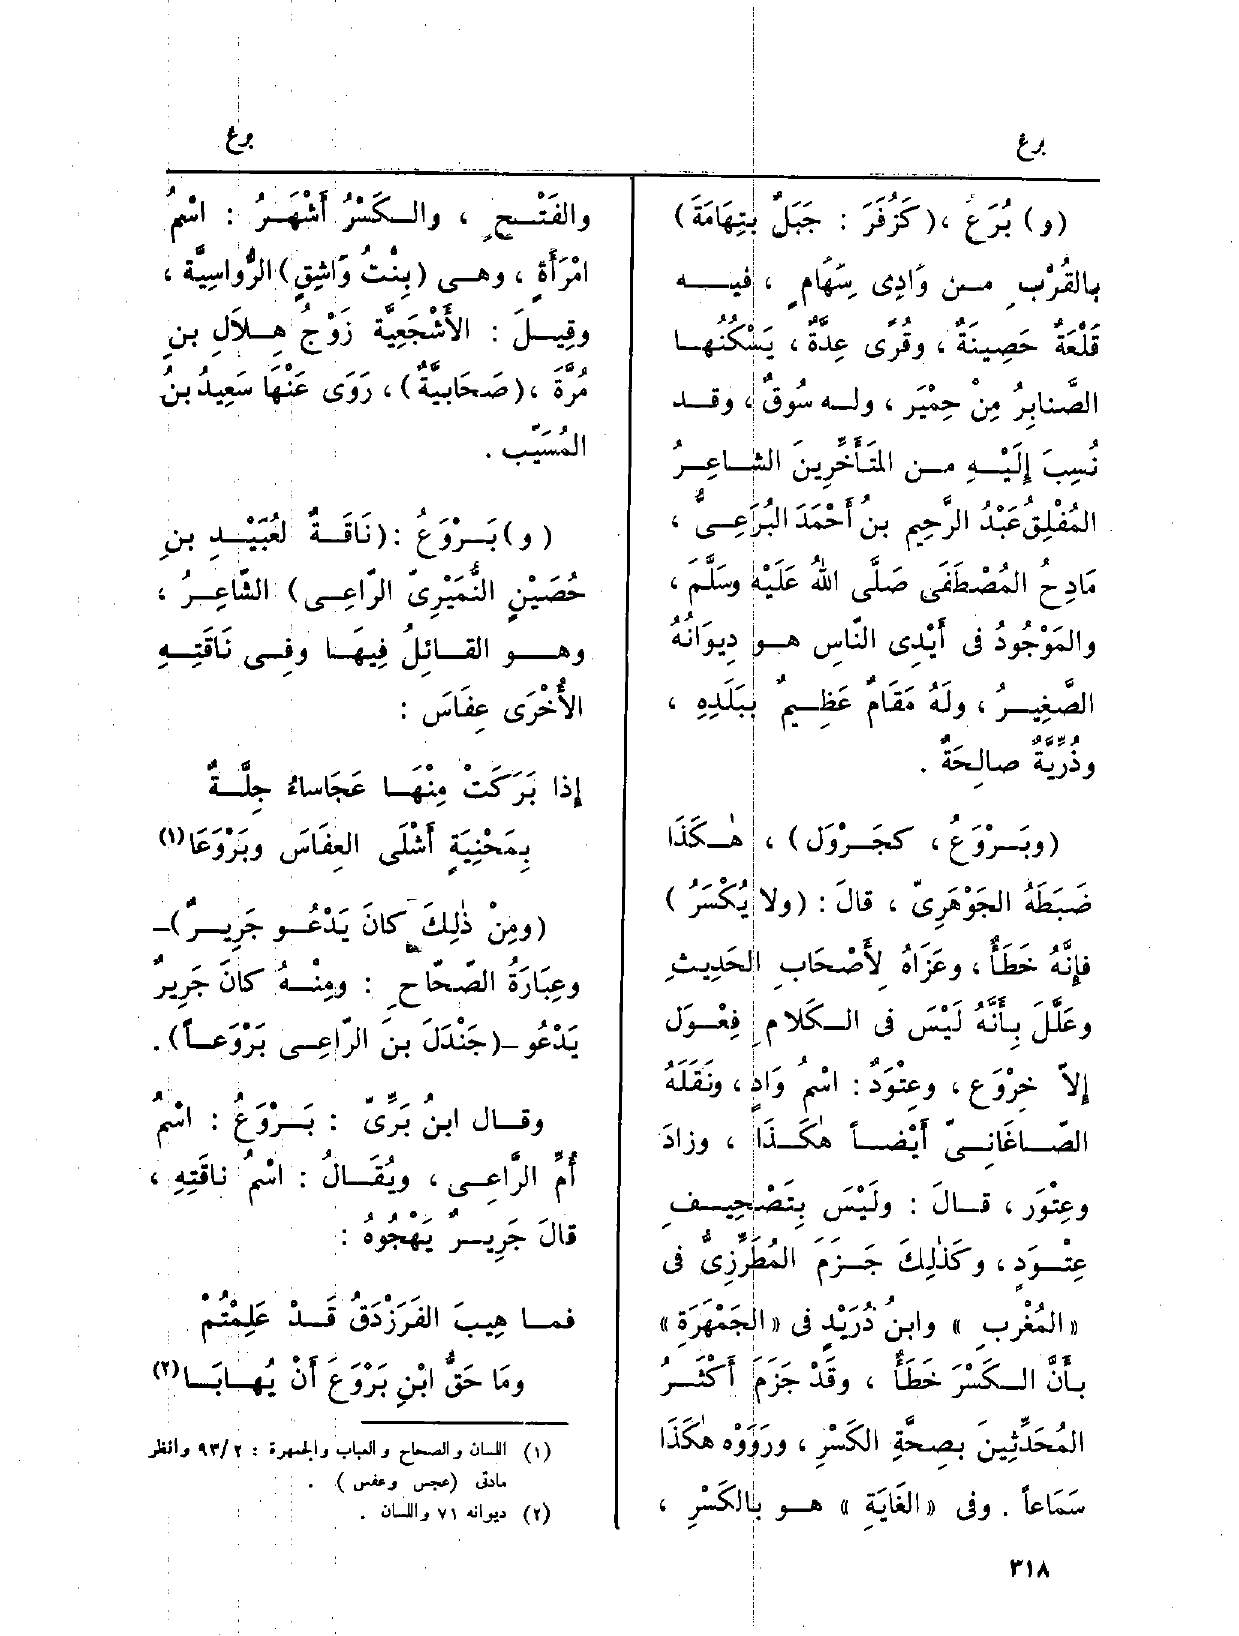 برع
برع
(و) بُرَعُ ، (كَزُفَرَ : جَبَلٌ بتِهَامَةَ)
بالقُرْبِ مـن وَادِى سِهَامٍ ، فيـــه
قَلْعَةٌ حَصِينَةٌ ، وقُرًى عِدَّةٌ ، يَسْكُنُهـا
الصَّنابِرُ مِنْ حِمْيَر ، ولـه سُوقٌ ، وقـد
نُسِبَ إِلَيْـهِ مـن المَتَأَخِّرِينَ الشاعِـرُ
المُفْلِقُ عَبْدُ الرَّحِيم بنُ أَحْمَدَ البُرَعِـىُّ ،
مَادِحُ المُصْطَفَى صَلَّى اللهُ عَلَيْهِ وسَلَّمَ ،
والمَوْجُودُ فى أَيْدِى النّاسِ هـو دِيوَانُهُ
الصَّغِيـرُ ، ولَهُ مَقَامٌ عَظِيـمٌ ببَلَدِهِ ،
وذُرِّيَّةٌ صالِحَةٌ .
(وبَـرْوَعُ ، كجَـرْوَل) ، هٰـكَذَا
ضَبَطَهُ الجَوْهَرِىّ ، قالَ : (ولا يُكْسَرُ)
فإِنَّهُ خَطَأٌ ، وعَزَاهُ لِأَصْحَابِ الحَدِيثِ
وعَلَّلَ بِأَنَّهُ لَيْسَ فى الـكَلامِ فِعْـوَل
إِلاّ خِرْوَع ، وعِتْوَدٌ : اسْمُ وَادٍ ، ونَقَلَهُ
الصّـاغَانِـىّ أَيْضـاً هٰكَـذَا ، وزادَ
وعِتْوَر ، قـالَ : ولَيْسَ بِتَصْحِيـفِ
عِتْـوَدٍ ، وكَذٰلِكَ جَـزَمَ المُطَرِّزِىُّ فى
« المُغْرِب » وابنُ دُرَيْدٍ فى « الجَمْهَرَةِ »
بـأَنَّ الـكَسْرَ خَطَأٌ ، وقَدْ جَزَمَ أَكْثَـرُ
المُحَدِّثِينَ بِصِحَّةِ الكَسْرِ ، ورَوَوْه هٰكَذَا
سَمَاعاً . وفى « الغَايَةِ » هـو بالكَسْرِ ،
والفَتْـحِ ، والـكَسْرُ أَشْهَـرُ : اسْمُ
امْرَأَةٍ ، وهـى (بِنْتُ وَاشِقٍ) الرُّواسِيَّة ،
وقِيـلَ : الأَشْجَعِيَّة زَوْجُ هِـلَالِ بنِ
مُرَّةَ ، (صَحَابِيَّةٌ) ، رَوَى عَنْهَا سَعِيدُ بنُ
المُسَيّب .
(و) بَـرْوَعُ : (نَاقَـةٌ لعُبَيْـدِ بنِ
حُصَيْنٍ النُّمَيْرِىّ الرّاعِـى) الشّاعِـرُ ،
وهـــو القـائلُ فِيهَـا وفـى نَاقَتِـهِ
الأُخْرَى عِفَاسَ :
إِذا بَرَكَتْ مِنْهَـا عَجَاساءُ جِلَّـةٌ
بِمَحْنِيَةٍ أَشْلَى العِفَاسَ وبَرْوَعَا (١)
(ومِنْ ذٰلِكَ كانَ يَدْعُـو جَرِيـرٌ) –
وعِبَارَةُ الصّحّاح : ومِنْـهُ كانَ جَرِيرٌ
يَدْعُو – (جَنْدَلَ بنَ الرّاعِـى بَرْوَعـاً) .
وقـال ابنُ بَرِّىّ : بَـرْوَعُ : اسْمُ
أُمِّ الرّاعِـى ، ويُقَـالُ : اسْمُ ناقَتِهِ ،
قالَ جَرِيـرٌ يَهْجُوهُ :
فمـا هِيبَ الفَرَزْدَقُ قَـدْ عَلِمْتُمْ
ومَا حَقُّ ابْنِ بَرْوَعَ أَنْ يُهـابَـا (٢)
(١) اللسان والصحاح والعباب والجمهرة : ٢ /٩٣ وانظر
مادتى (عجس وعفس) .
(٢) ديوانه ٧١ واللسان .
٣١٨